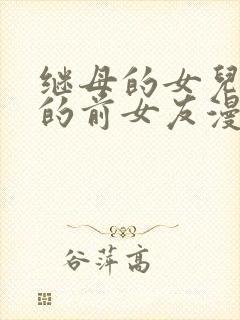 继母的女兒
的前女友漫
谷萍高